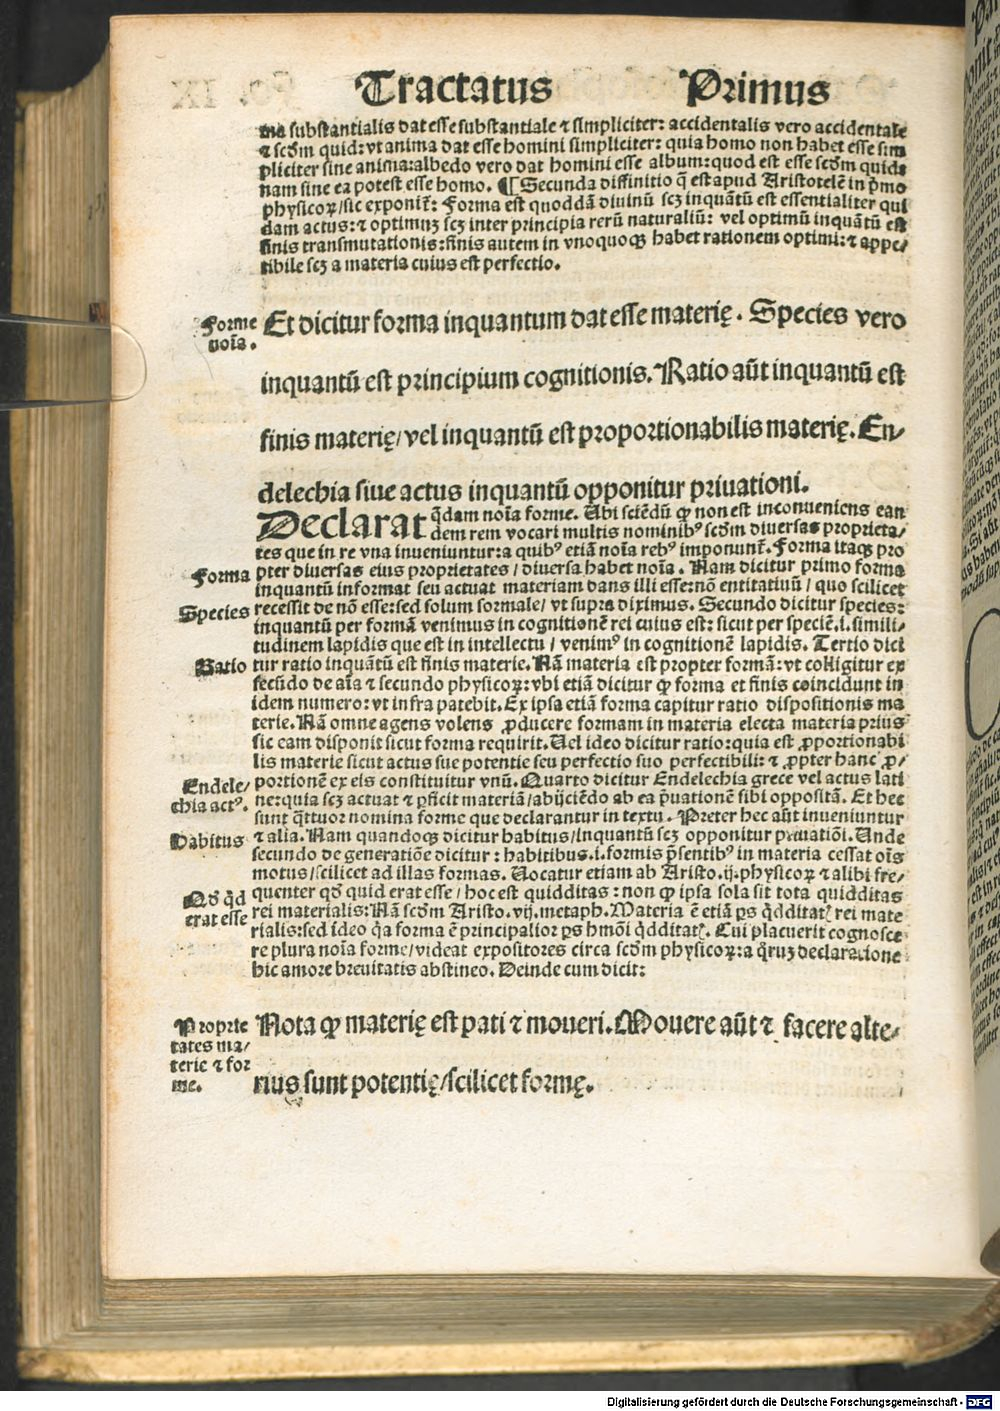 Tractatus Primus
ma substantialis dat esse substantiale ⁊ simpliciter: accidentalis vero accidentale
⁊ scd̃m quid: vt anima dat esse homini simpliciter: quia homo non habet esse sim
pliciter sine anima: albedo vero dat homini esse album: quod est esse scd̃m quid:
nam sine ea potest esse homo. ¶ Secunda diffinitio q̃ est apud Aristotelẽ in p̃mo
physicoꝝ/ sic exponit̃: Forma est quoddã diuinũ scꝫ inquãtũ est essentialiter qui
dam actus: ⁊ optimuꝫ scꝫ inter principia rerũ naturaliũ: vel optimũ inquãtũ est
finis transmutationis: finis autem in vnoquoqꝫ habet rationem optimi: ⁊ appe/
tibile scꝫ a materia cuius est perfectio.
Forme
noĩa.
Et dicitur forma inquantum dat esse materię. Species vero
inquantũ est principium cognitionis. Ratio aũt inquantũ est
finis materię/ vel inquantũ est proportionabilis materię. En/
delechia siue actus inquantũ opponitur priuationi.
Declarat q̃dam noĩa forme. Ubi sciẽdũ ꝙ non est inconueniens ean
dem rem vocari multis nominibꝰ scd̃m diuersas proprieta/
tes que in re vna inueniuntur: a quibꝰ etiã noĩa rebꝰ imponunt̃. Forma itaqꝫ pro
Forma
pter diuersas eius proprietates/ diuersa habet noĩa. Nam dicitur primo forma
inquantũ informat seu actuat materiam dans illi esse: nõ entitatiuũ/ quo scilicet
Species
recessit de nõ esse: sed solum formale/ vt supra diximus. Secundo dicitur species:
inquantũ per formã venimus in cognitionẽ rei cuius est: sicut per speciẽ .i. simili/
tudinem lapidis que est in intellectu/ venimꝰ in cognitionẽ lapidis. Tertio dici
Ratio
tur ratio inquãtũ est finis materie. Nã materia est propter formã: vt colligitur ex
secũdo de aĩa ⁊ secundo physicoꝝ: vbi etiã dicitur ꝙ forma et finis coincidunt in
idem numero: vt infra patebit. Ex ipsa etiã forma capitur ratio dispositionis ma
terie. Nã omne agens volens ꝓducere formam in materia electa materia prius
sic eam disponit sicut forma requirit. Uel ideo dicitur ratio: quia est ꝓportionabi
lis materie sicut actus sue potentie seu perfectio suo perfectibili: ⁊ ꝓpter hanc ꝓ/
Endele/
chia actꝰ.
portionẽ ex eis constituitur vnũ. Quarto dicitur Endelechia grece vel actus lati
ne: quia scꝫ actuat ⁊ ꝑficit materiã/ abijciẽdo ab ea p̃uationẽ sibi oppositã. Et hec
sunt q̃ttuor nomina forme que declarantur in textu. Preter hec aũt inueniuntur
Habitus
⁊ alia. Nam quandoqꝫ dicitur habitus/ inquantũ scꝫ opponitur priuatiõi. Unde
secundo de generatiõe dicitur: habitibus .i. formis p̃sentibꝰ in materia cessat oĩs
motus/ scilicet ad illas formas. Uocatur etiam ab Aristo. ij. physicoꝝ ⁊ alibi fre/
Qd̃ q̃d
erat esse
quenter qd̃ quid erat esse/ hoc est quidditas: non ꝙ ipsa sola sit tota quidditas
rei materialis: Nã scd̃m Aristo. vij. metaph. Materia ẽ etiã ꝑs q̃dditatꝭ rei mate
rialis: sed ideo q̃a forma ẽ principalior ꝑs hmõi q̃dditatꝭ. Cui placuerit cognosce
re plura noĩa forme/ videat expositores circa scd̃m physicoꝝ: a q̃ruꝫ declaratione
hic amore breuitatis abstineo. Deinde cum dicit:
Proprie
tates ma/
terie ⁊ for
me.
Nota ꝙ materię est pati ⁊ moueri. Mouere aũt ⁊ facere alte/
rius sunt potentię/ scilicet formę.
Digitalisierung gefördert durch die Deutsche Forschungsgemeinschaft - DFG